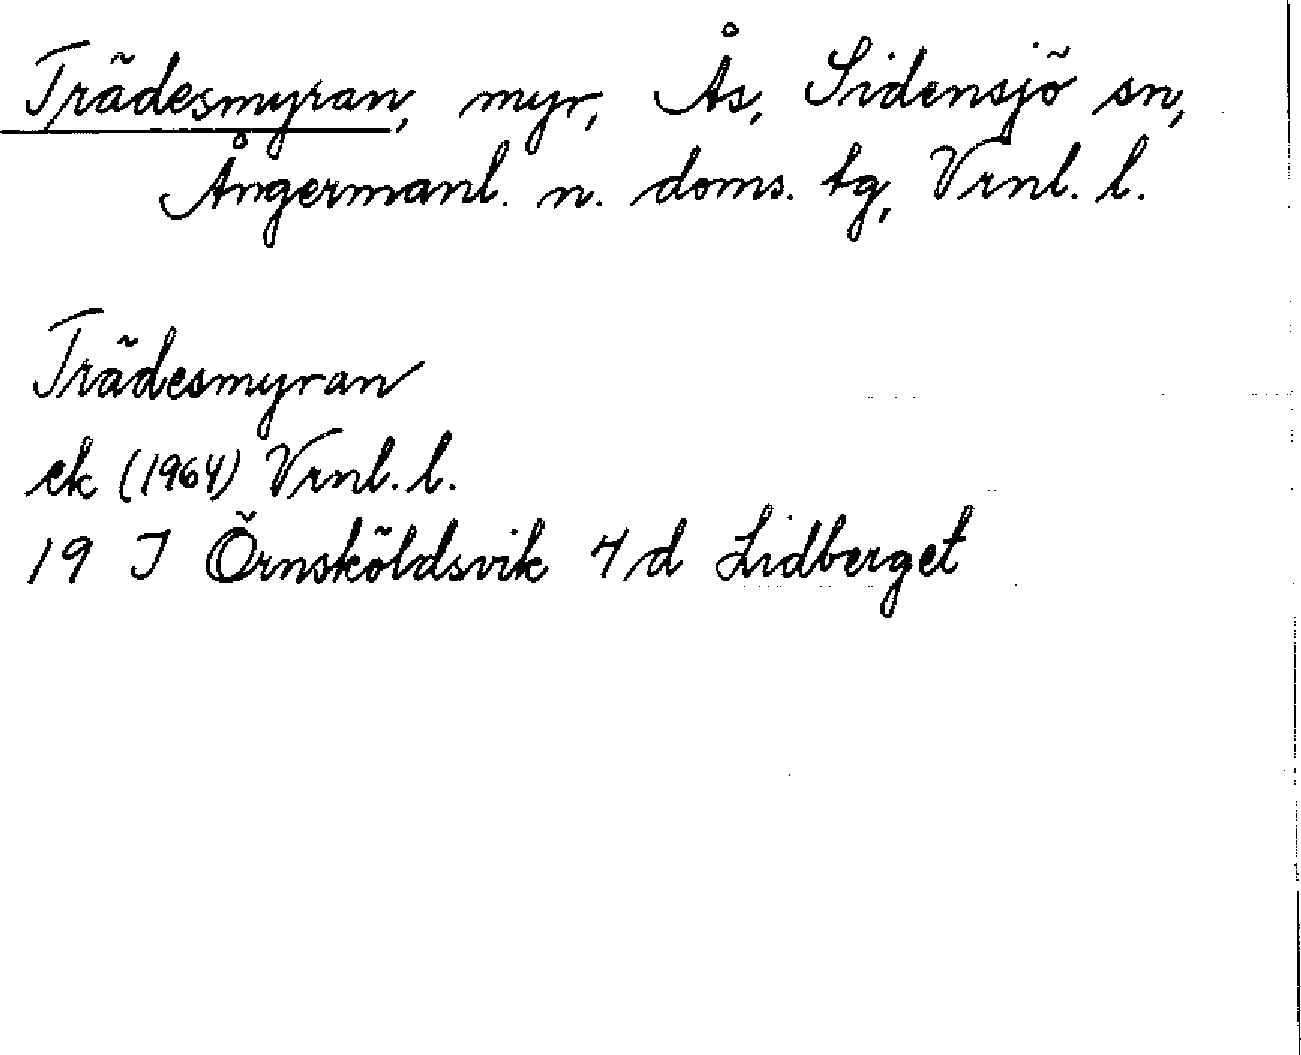 Trädesmyran, myr, Ås, Sidensjö sn,
Ångermanl. n. doms. tg, Vrnl. l.
Trädesmyran
ek (1964) Vrnl. l.
19 J Örnsköldsvik 4 d Lidberget